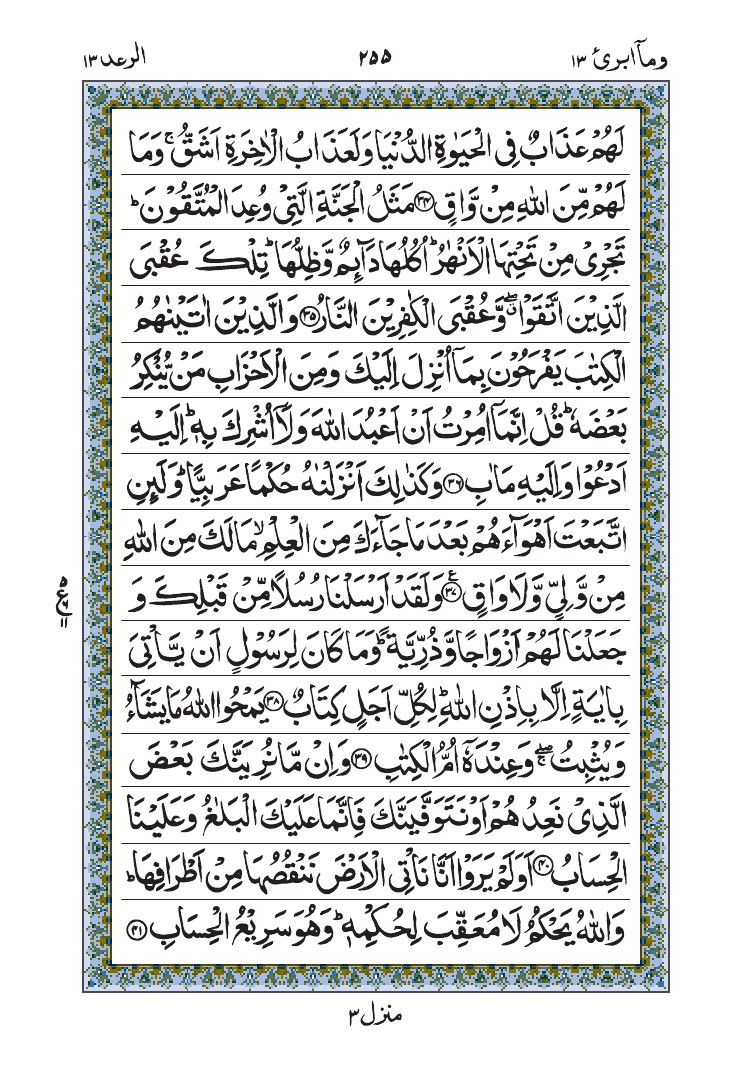 ومآ ابرئ ١٣ ٢٥٥ الرعد ١٣
لَهُمْ عَذَابٌ فِی الْحَیٰوةِ الدُّنْیَا وَلَعَذَابُ الْاٰخِرَةِ اَشَقُّ ۚ وَمَا
لَهُمْ مِّنَ اللّٰهِ مِنْ وَّاقٍ ﴿۳۴﴾ مَثَلُ الْجَنَّةِ الَّتِیْ وُعِدَ الْمُتَّقُوْنَ ؕ
تَجْرِیْ مِنْ تَحْتِهَا الْاَنْهٰرُ ؕ اُكُلُهَا دَآىِٕمٌ وَّظِلُّهَا ؕ تِلْكَ عُقْبَی
الَّذِیْنَ اتَّقَوْا ۖۗ وَّعُقْبَی الْكٰفِرِیْنَ النَّارُ ﴿۳۵﴾ وَالَّذِیْنَ اٰتَیْنٰهُمُ
الْكِتٰبَ یَفْرَحُوْنَ بِمَاۤ اُنْزِلَ اِلَیْكَ وَمِنَ الْاَحْزَابِ مَنْ یُّنْكِرُ
بَعْضَهٗ ؕ قُلْ اِنَّمَاۤ اُمِرْتُ اَنْ اَعْبُدَ اللّٰهَ وَلَاۤ اُشْرِكَ بِهٖ ؕ اِلَیْهِ
اَدْعُوْا وَاِلَیْهِ مَاٰبِ ﴿۳۶﴾ وَكَذٰلِكَ اَنْزَلْنٰهُ حُكْمًا عَرَبِیًّا ؕ وَلَىِٕنِ
اتَّبَعْتَ اَهْوَآءَهُمْ بَعْدَ مَا جَآءَكَ مِنَ الْعِلْمِ ۙ مَا لَكَ مِنَ اللّٰهِ
مِنْ وَّلِیٍّ وَّلَا وَاقٍ ﴿۳۷﴾ ع وَلَقَدْ اَرْسَلْنَا رُسُلًا مِّنْ قَبْلِكَ وَ
جَعَلْنَا لَهُمْ اَزْوَاجًا وَّذُرِّیَّةً ؕ وَمَا كَانَ لِرَسُوْلٍ اَنْ یَّاْتِیَ
بِاٰیَةٍ اِلَّا بِاِذْنِ اللّٰهِ ؕ لِكُلِّ اَجَلٍ كِتَابٌ ﴿۳۸﴾ یَمْحُوا اللّٰهُ مَا یَشَآءُ
وَیُثْبِتُ ۖۚ وَعِنْدَهٗۤ اُمُّ الْكِتٰبِ ﴿۳۹﴾ وَاِنْ مَّا نُرِیَنَّكَ بَعْضَ
الَّذِیْ نَعِدُهُمْ اَوْ نَتَوَفَّیَنَّكَ فَاِنَّمَا عَلَیْكَ الْبَلٰغُ وَعَلَیْنَا
الْحِسَابُ ﴿۴۰﴾ اَوَلَمْ یَرَوْا اَنَّا نَاْتِی الْاَرْضَ نَنْقُصُهَا مِنْ اَطْرَافِهَا ؕ
وَاللّٰهُ یَحْكُمُ لَا مُعَقِّبَ لِحُكْمِهٖ ؕ وَهُوَ سَرِیْعُ الْحِسَابِ ﴿۴۱﴾
منزل ٣